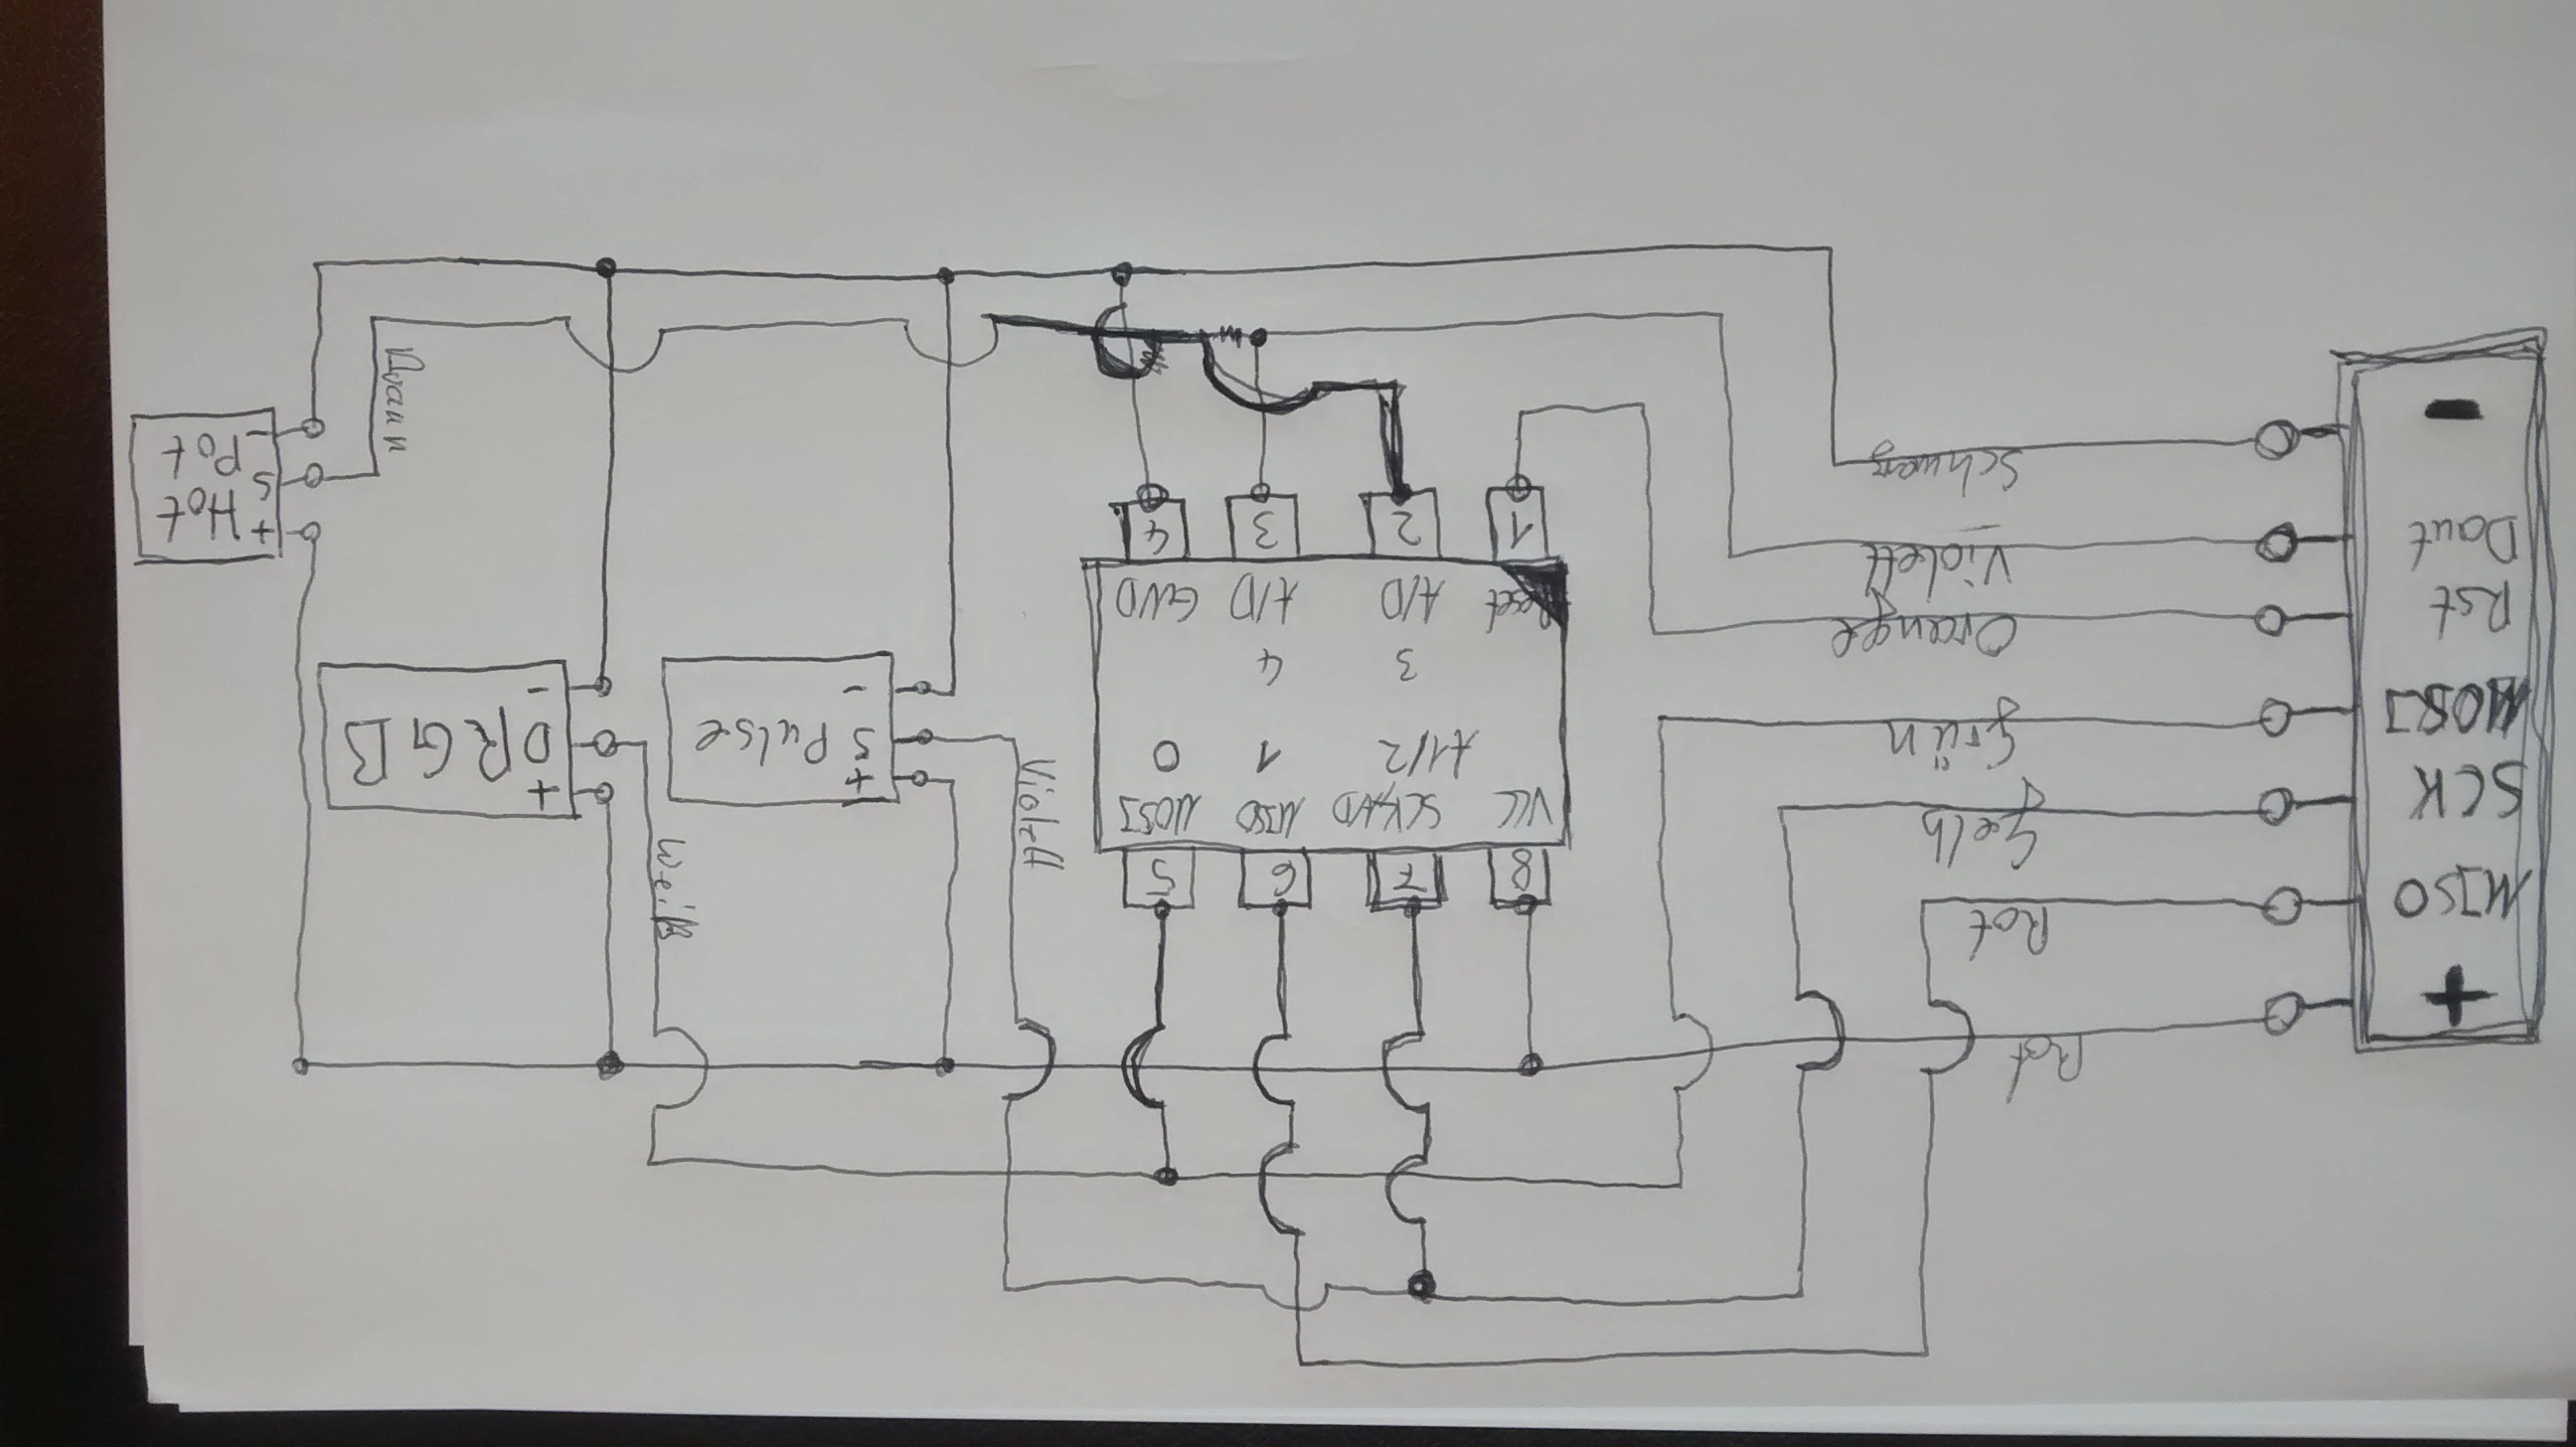 +
MISO
SCK
MOSI
Rst
Dout
-
Rot
Rot
Gelb
Grün
Orange
Violett
Schwarz
8 7 6 5
VCC SCK A/D MISO MOSI
A1/2 1 0
3 4
Reset A/D A/D GND
1 2 3 4
Violett
+
S Pulse
-
Weiß
+
D RGB
-
+ Hot
S Pot
-